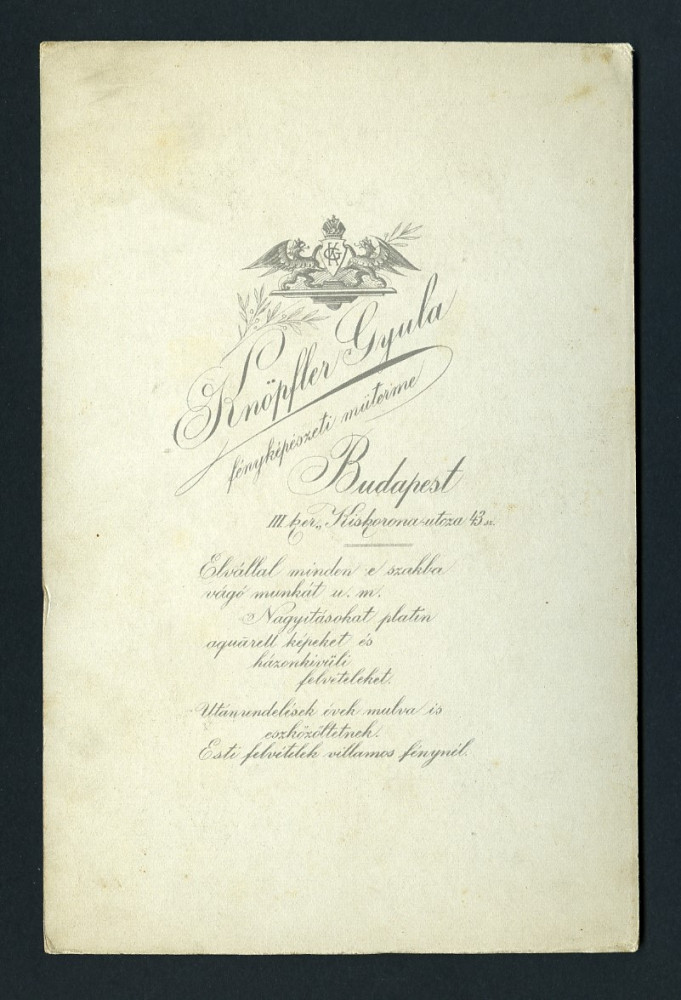 KG
Knöpfler Gyula
fényképészeti műterme
Budapest
III. ker., Kiskorona-utcza 43 sz.
Elvállal minden e szakba
vágó munkát u. m.
Nagyításokat platin
aquarell képeket és
házonkivüli
felvételeket.
Utánrendelések évek mulva is
eszközöltetnek.
Esti felvételek villamos fénynél.